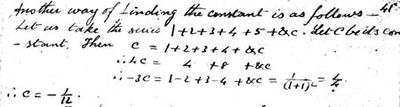 Another way of finding the constant is as follows — 41
Let us take the series 1+2+3+4+5+&c. Let C be its con
- stant. Then C = 1+2+3+4+&c
∴ 4C = 4 +8 +&c
∴ -3C = 1-2+3-4+&c = 1/(1+1)² = 1/4
∴ C = -1/12.